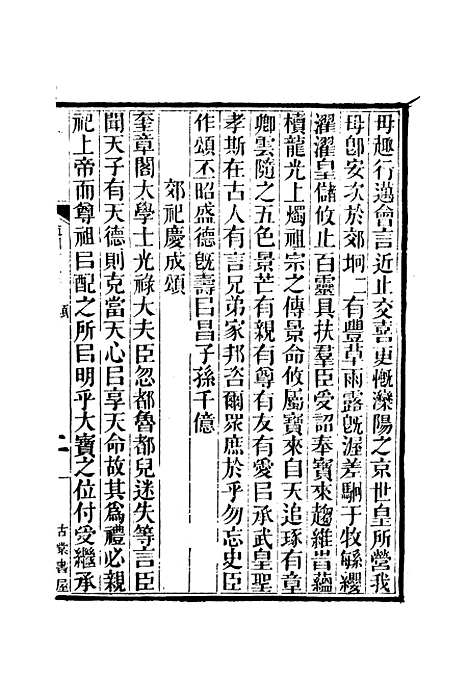 毋趣行邁會言近止交喜更慨灤陽之京世皇所營我
毋卽安次於郊坰二有豐草雨露旣渥差駉于牧緐纓
濯濯皇儲攸止百靈具扶羣臣受詔奉寶來趨維昔蘊
櫝龍光上燭祖宗之傳景命攸屬寶來自天追琢有章
卿雲隨之五色景芒有親有尊有友有愛㠯承武皇聖
孝斯在古人有言兄弟家邦咨爾眾庶於乎勿忘史臣
作頌丕昭盛德旣壽㠯昌子孫千億
郊祀慶成頌
奎章閣大學士光祿大夫臣忽都魯都兒迷失等言臣
聞天子有天德則克當天心㠯享天命故其爲禮必親
祀上帝而尊祖㠯配之所㠯明乎大寶之位付受繼承
頌
二
古棠書屋